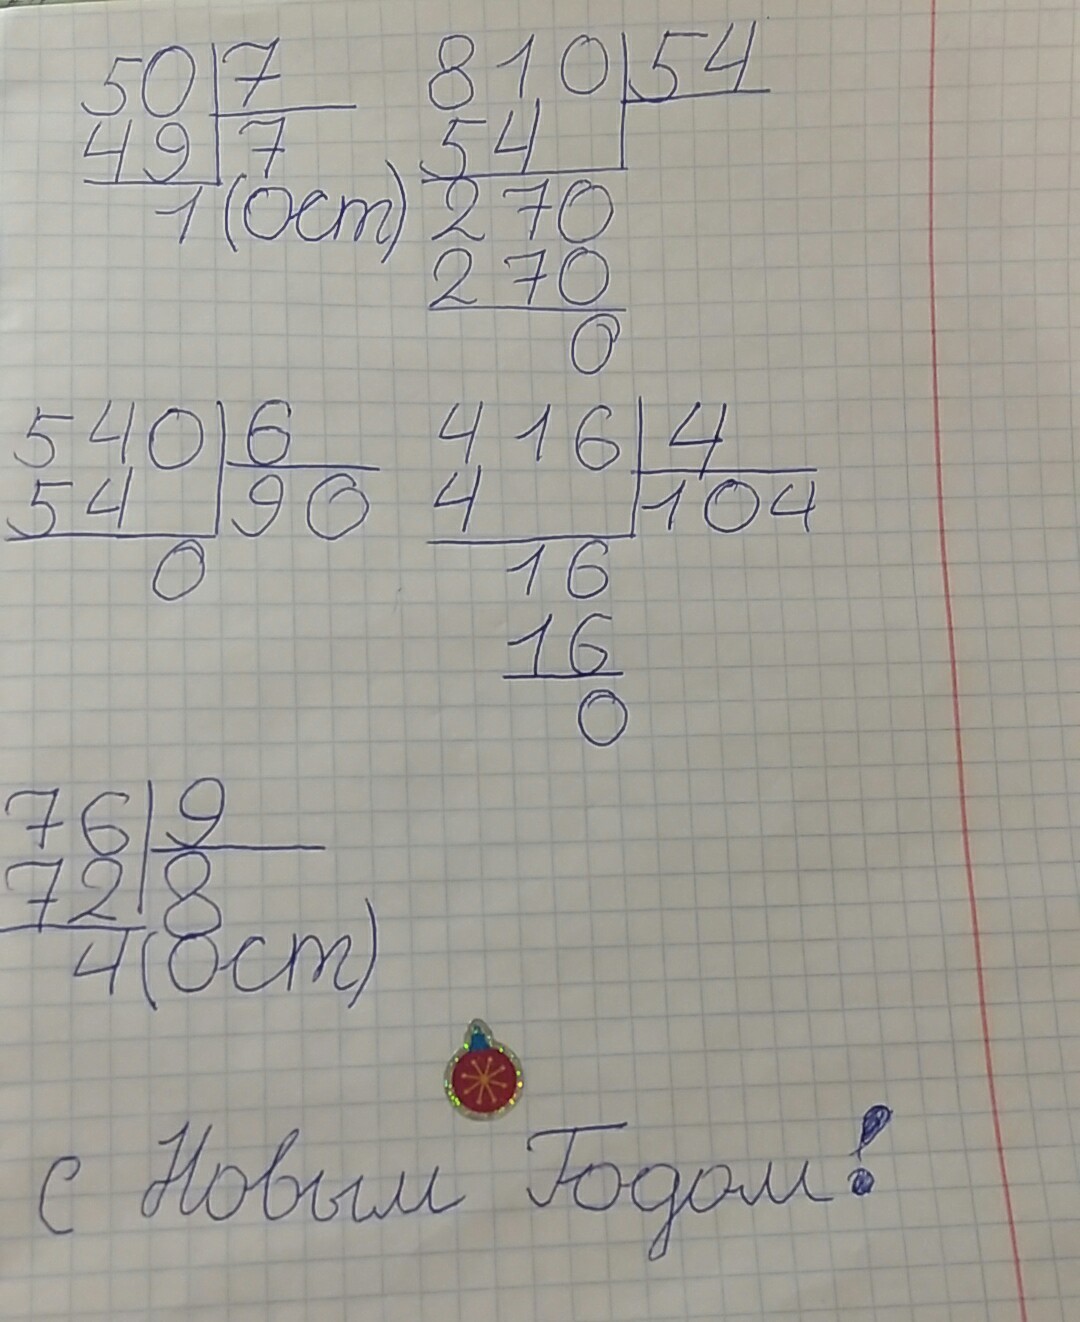 50 7
49 7
1 (Ост)
810 54
54
270
270
0
540 6
54 90
0
416 4
4 104
16
16
0
76 9
72 8
4 (Ост)
с Новым Годом!